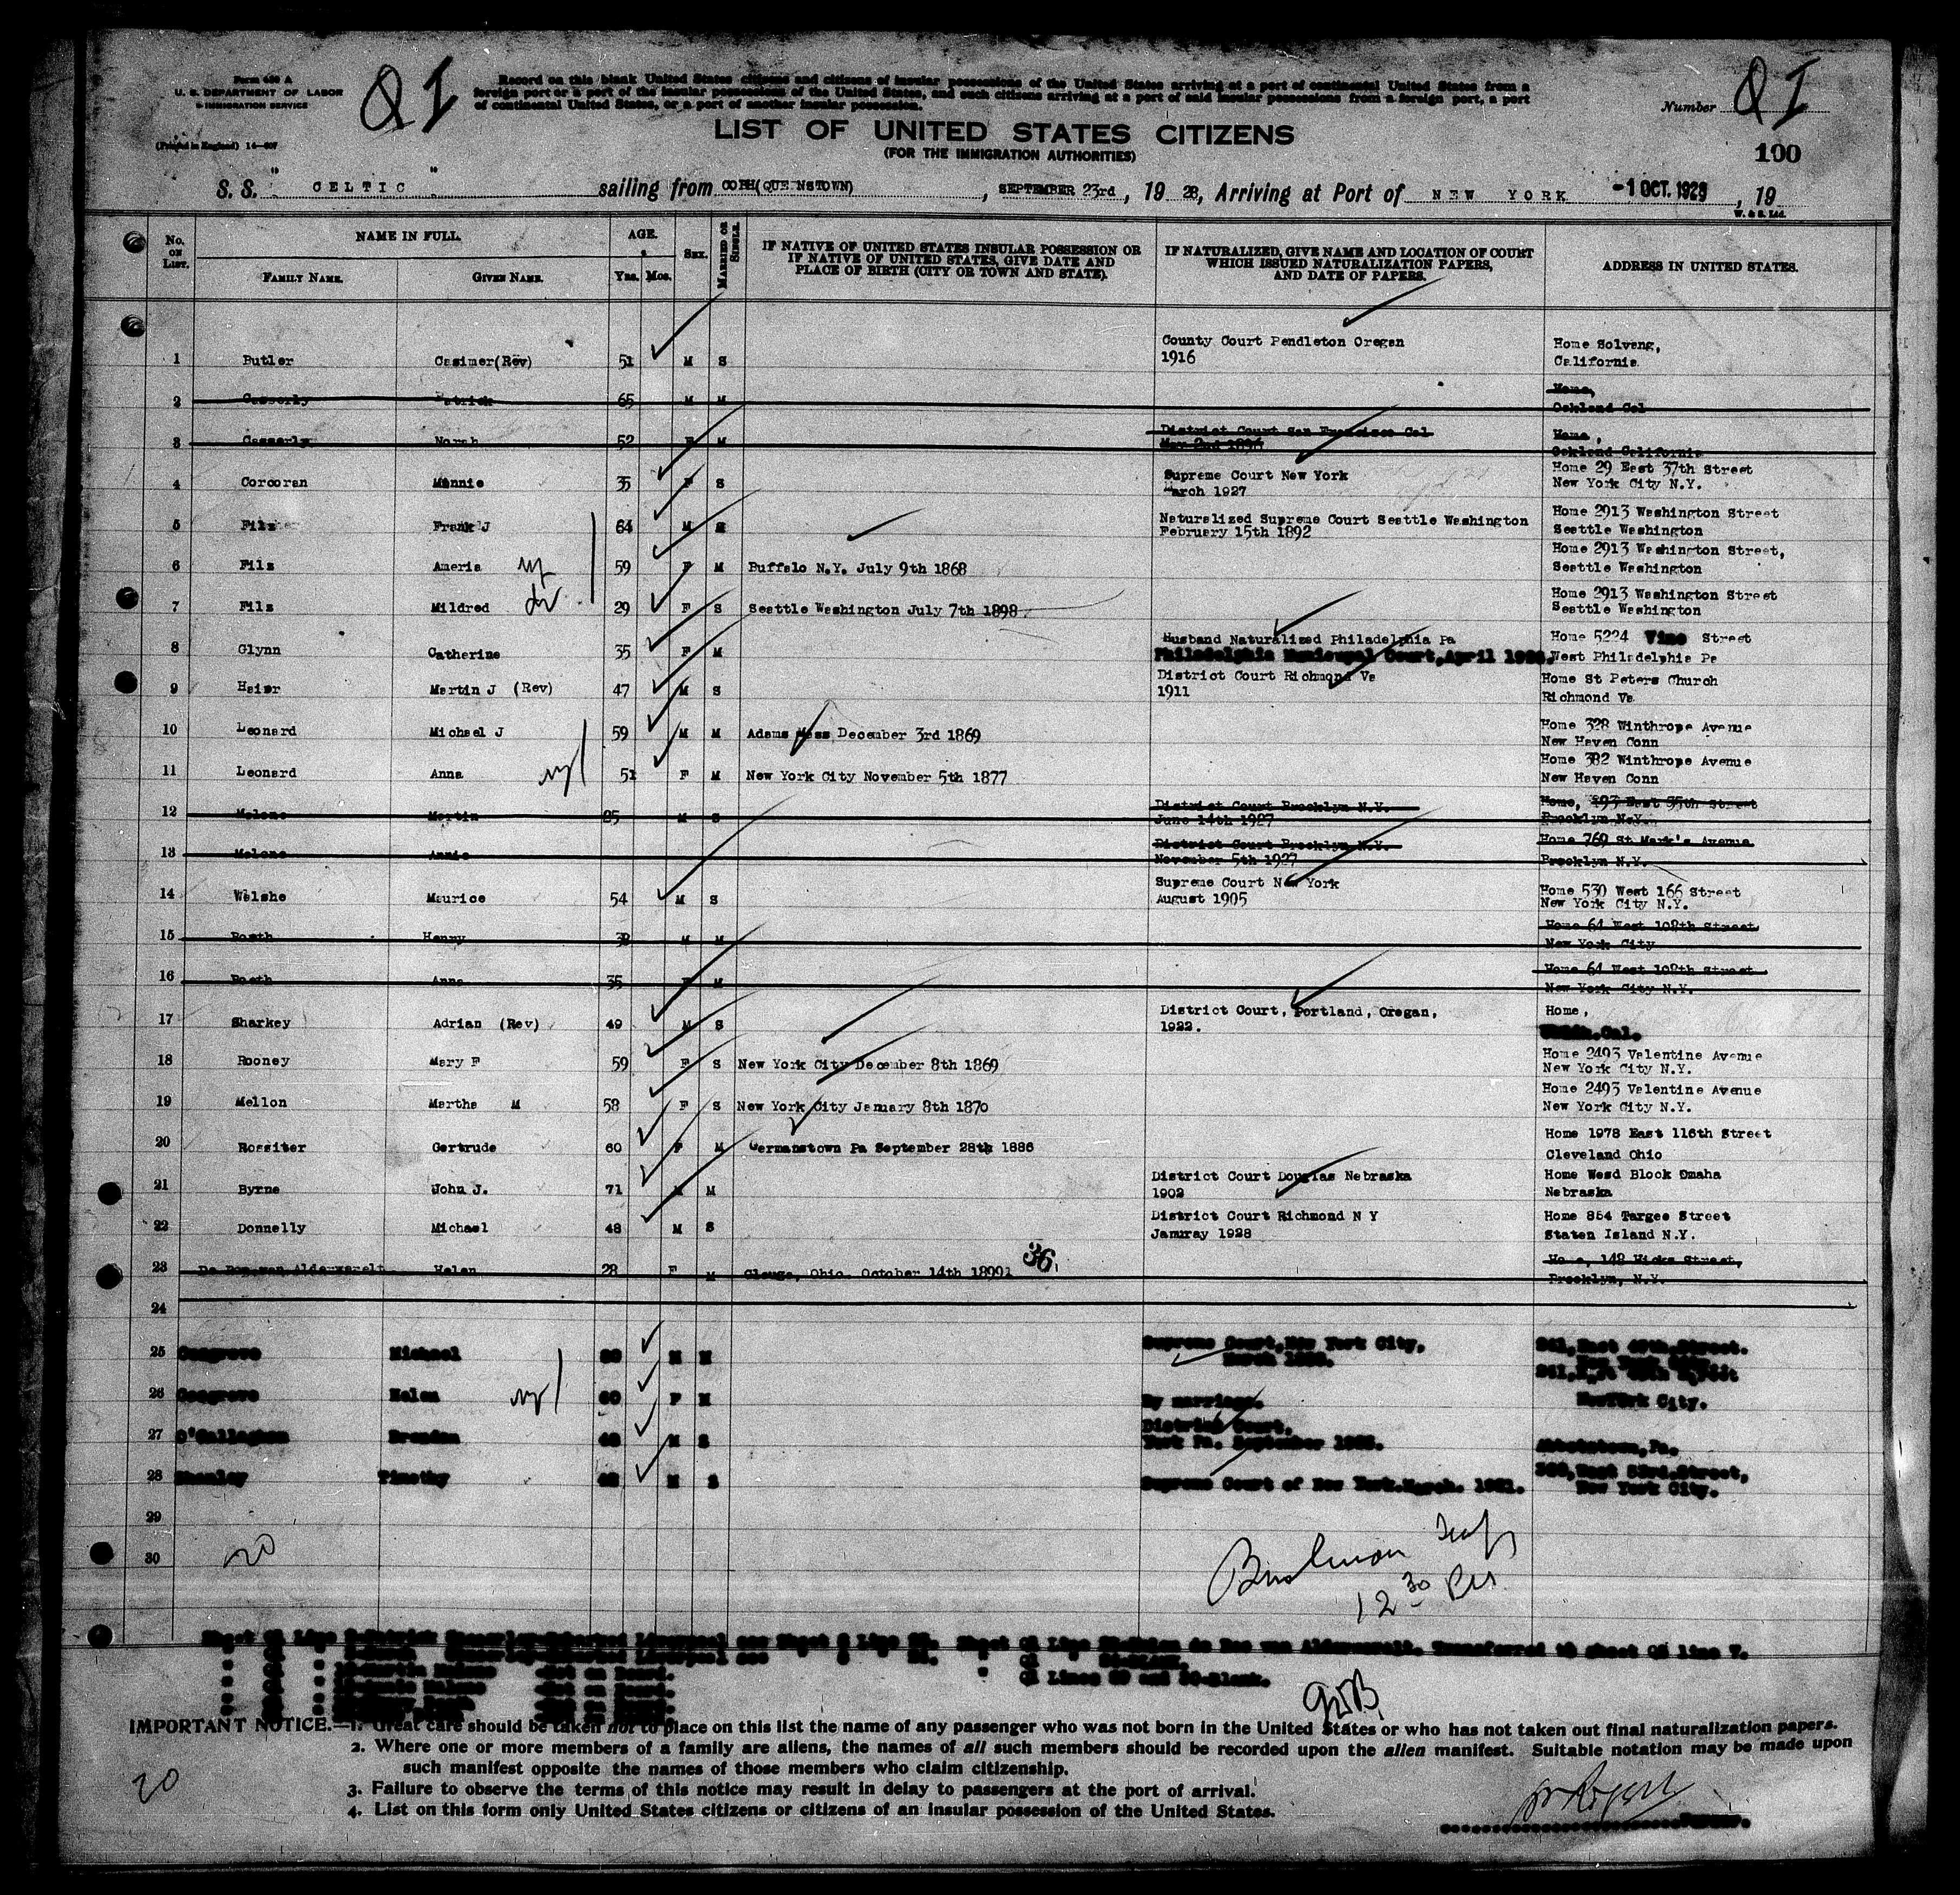 Form 630 A
U. S. DEPARTMENT OF LABOR
IMMIGRATION SERVICE
(Printed in England) 14—607
QI
Record on this blank United States citizens and citizens of insular possessions of the United States arriving at a port of continental United States from a
foreign port or a port of the insular possessions of the United States, and such citizens arriving at a port of said insular possessions from a foreign port, a port
of continental United States, or a port of another insular possession.
Number QI
LIST OF UNITED STATES CITIZENS
(FOR THE IMMIGRATION AUTHORITIES)
100
S.S. "CELTIC" sailing from COBH(QUEENSTOWN), SEPTEMBER 23rd, 19 28, Arriving at Port of NEW YORK -1 OCT. 1928, 19
W. & S. Ltd.
No. ON LIST. NAME IN FULL. FAMILY NAME. GIVEN NAME. AGE. Yrs. Mos. SEX. MARRIED OR SINGLE. IF NATIVE OF UNITED STATES INSULAR POSSESSION OR IF NATIVE OF UNITED STATES, GIVE DATE AND PLACE OF BIRTH (CITY OR TOWN AND STATE). IF NATURALIZED, GIVE NAME AND LOCATION OF COURT WHICH ISSUED NATURALIZATION PAPERS, AND DATE OF PAPERS. ADDRESS IN UNITED STATES.
1 Butler Casimer(Rev) 51 M S County Court Pendleton Oregan 1916 Home Solvang, California
2 Casserly Patrick 65 M M Home, Oakland Cal
3 Casserly Norah 52 F M District Court San Francisco Cal May 2nd Home, Oakland California
4 Corcoran Minnie 35 F S Supreme Court New York March 1927 Home 29 East 37th Street New York City N.Y.
5 Filz Frank J 64 M M Naturalized Supreme Court Seattle Washington February 15th 1892 Home 2913 Washington Street Seattle Washington
6 Filz Ameria 59 F M Buffalo N.Y. July 9th 1868 Home 2913 Washington Street, Seattle Washington
7 Filz Mildred 29 F S Seattle Washington July 7th 1898 Home 2913 Washington Street Seattle Washington
8 Glynn Catherine 35 F M Husband Naturalized Philadelphia Pa Philadelphia Municupal Court,April Home 5224 Vine Street West Philadelphia Pa
9 Haier Martin J (Rev) 47 M S District Court Richmond Va 1911 Home St Peters Church Richmond Va
10 Leonard Michael J 59 M M Adams Mass December 3rd 1869 Home 328 Winthrope Avenue New Haven Conn
11 Leonard Anna 51 F M New York City November 5th 1877 Home 382 Winthrope Avenue New Haven Conn
12 Malone Martin 25 M S District Court Brooklyn N.Y. June 14th 1927 Home, 293 East 35th Street Brooklyn N.Y.
13 Malone Annie District Court Brooklyn N.Y. November 5th 1927 Home 769 St Mark's Avenue Brooklyn N.Y.
14 Walshe Maurice 54 M S Supreme Court New York August 1905 Home 530 West 166 Street New York City N.Y.
15 Henry 38 M M Home 64 West 108th Street New York City
16 Anna 35 F M Home 64 West 108th Street New York City N.Y.
17 Sharkey Adrian (Rev) 49 M S District Court, Portland, Oregan, 1922. Home, Cal.
18 Rooney Mary F 59 F S New York City December 8th 1869 Home 2493 Valentine Avenue New York City N.Y.
19 Mellon Martha M 58 F S New York City January 8th 1870 Home 2493 Valentine Avenue New York City N.Y.
20 Rossiter Gertrude 60 F M Germanstown Pa September 28th 1886 Home 1978 East 116th Street Cleveland Ohio
21 Byrne John J. 71 M M District Court Douglas Nebraska 1902 Home Wead Block Omaha Nebraska
22 Donnelly Michael 48 M S District Court Richmond N Y Januray 1928 Home 854 Targee Street Staten Island N.Y.
23 Helen 28 F M Ohio October 14th 1899 36 Home, 148 Hicks Street, Brooklyn, N.Y.
24
25 Cosgrove Michael M M Supreme Court,New York City. March East Street.
26 Cosgrove Helen 60 F M By marriage. New York City.
27 O'Callaghan Brendan M S District Court, York Pa. September Abbotstown,Pa.
28 Timothy M S Supreme Court of New York.March. 1921. West 53rd.Street, New York City.
29
30
20
12 30 PM
IMPORTANT NOTICE.—1. Great care should be taken not to place on this list the name of any passenger who was not born in the United States or who has not taken out final naturalization papers.
2. Where one or more members of a family are aliens, the names of all such members should be recorded upon the alien manifest. Suitable notation may be made upon
such manifest opposite the names of those members who claim citizenship.
3. Failure to observe the terms of this notice may result in delay to passengers at the port of arrival.
4. List on this form only United States citizens or citizens of an insular possession of the United States.
20
Purser.